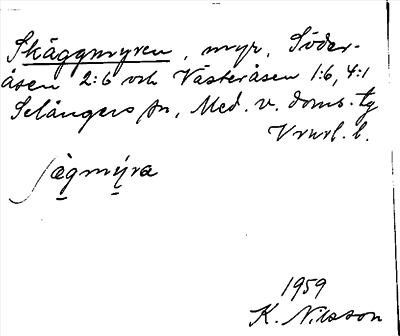 Skäggmyren, myr, Söder-
åsen 2:6 och Västeråsen 1:6, 4:1
Selångers sn, Med. v. doms. tg
Vrnrl. l.
jägmýra
1959
K. Nilsson